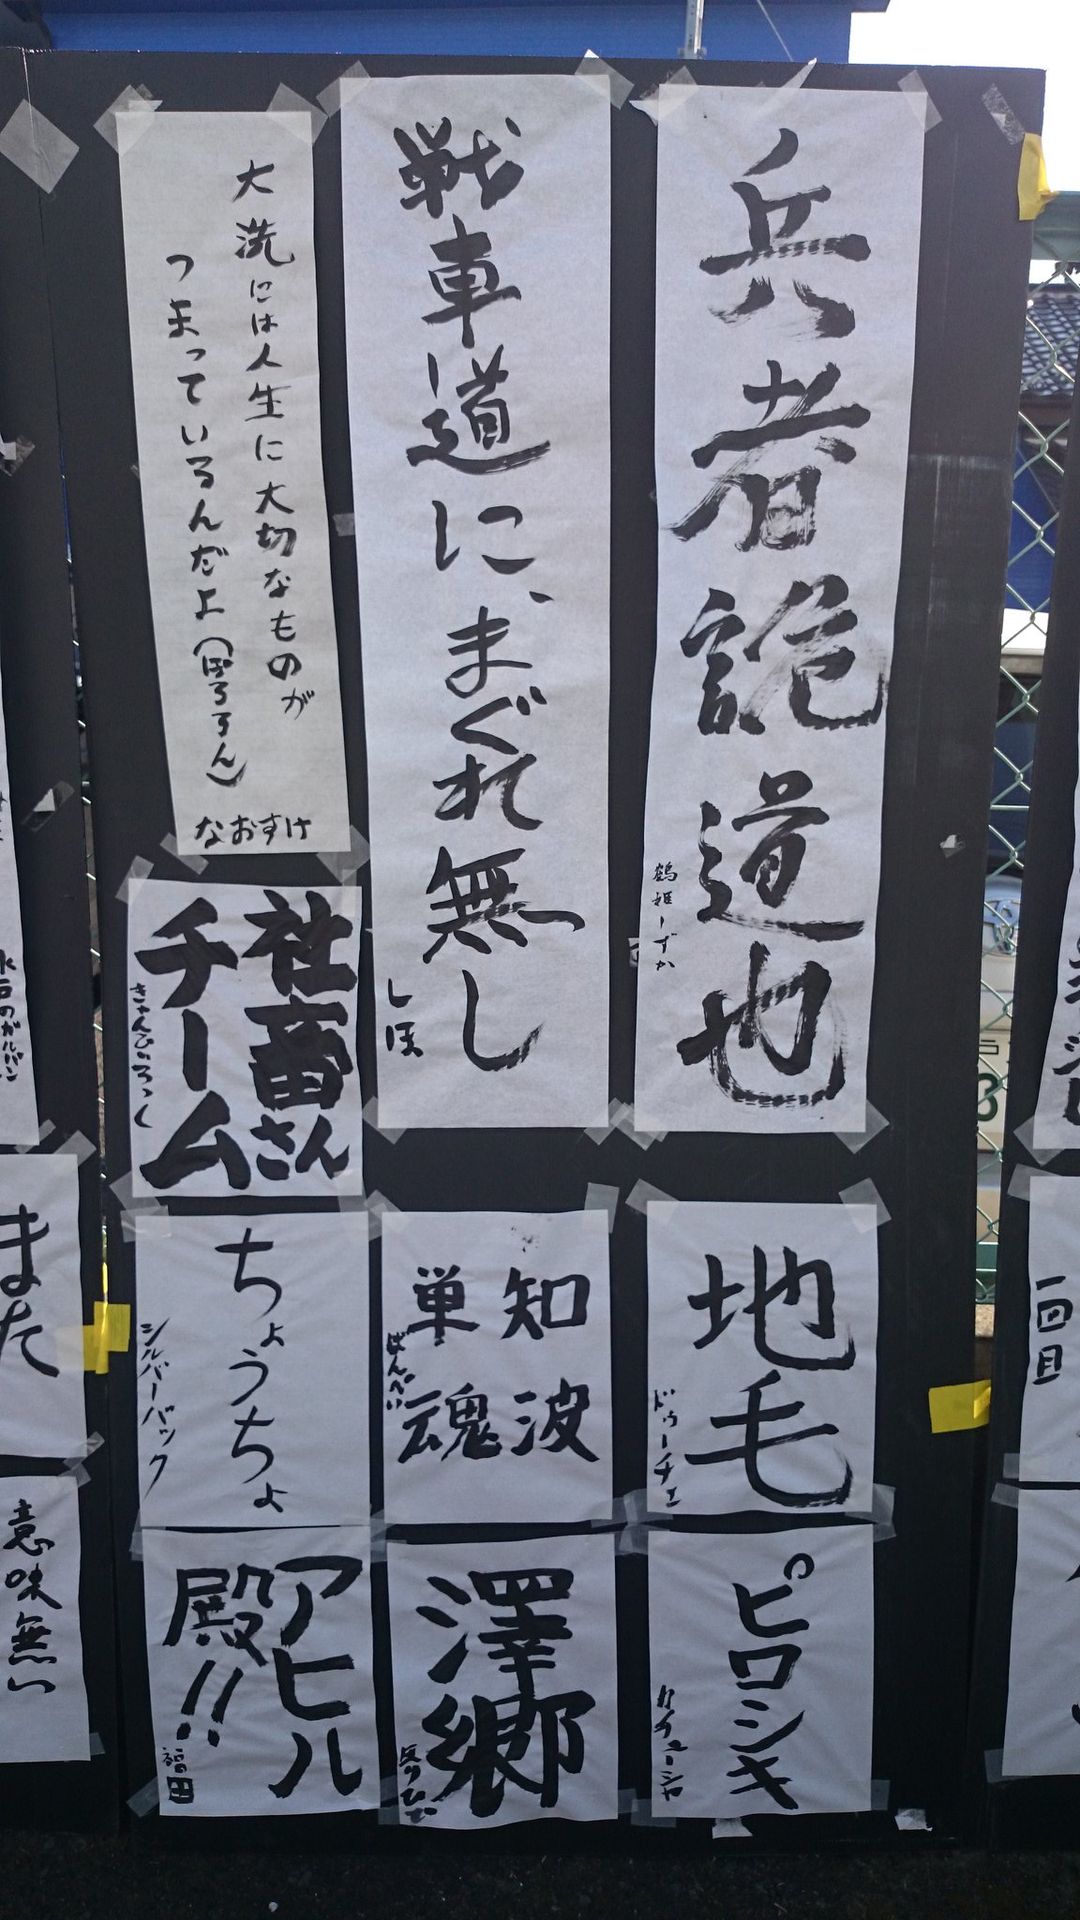 兵者詭道也
鶴姫しずか
戦車道に、まぐれ無し
しほ
大洗には人生に大切なものが
つまっているんだよ(ぽろろん)
なおすけ
社畜さん
チーム
地毛
ドゥーチェ
知波
単魂
ばんぺい
ちょうちょ
シルバーバック
ピロシキ
カチューシャ
澤郷
アヒル
殿!!
福田
また
意味無い
一回目
水石のガルパン